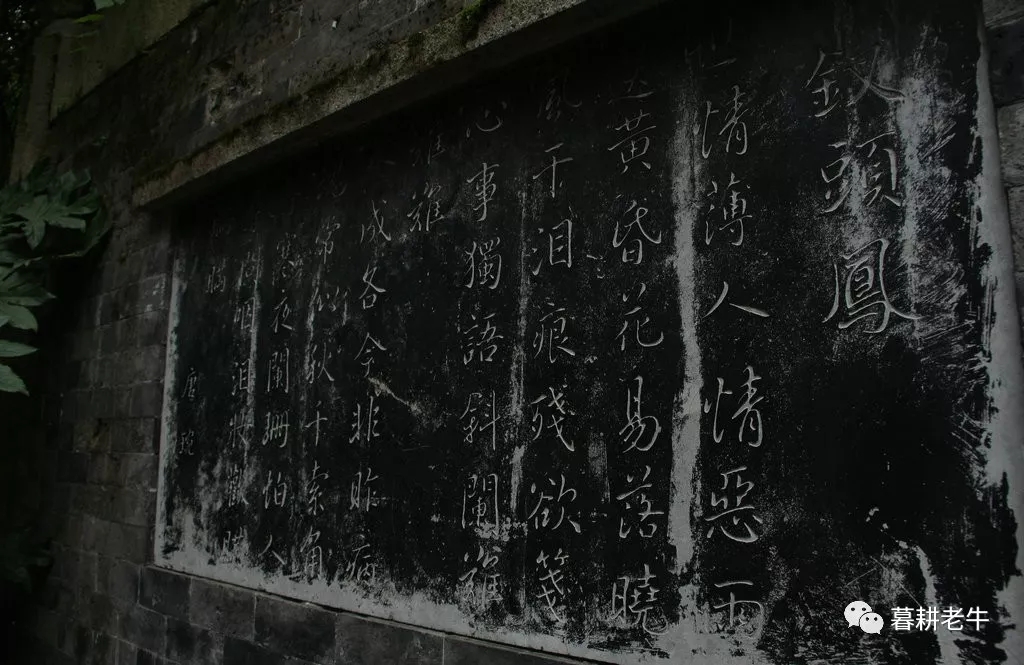 釵頭鳳
世情薄人情惡雨
送黄昏花易落曉
風干泪痕殘欲箋
心事獨語斜闌難
難難
人成各今非昨病
魂常似秋千索角
寒夜闌珊怕人
問咽泪裝歡瞞
瞞
唐琬
暮耕老牛